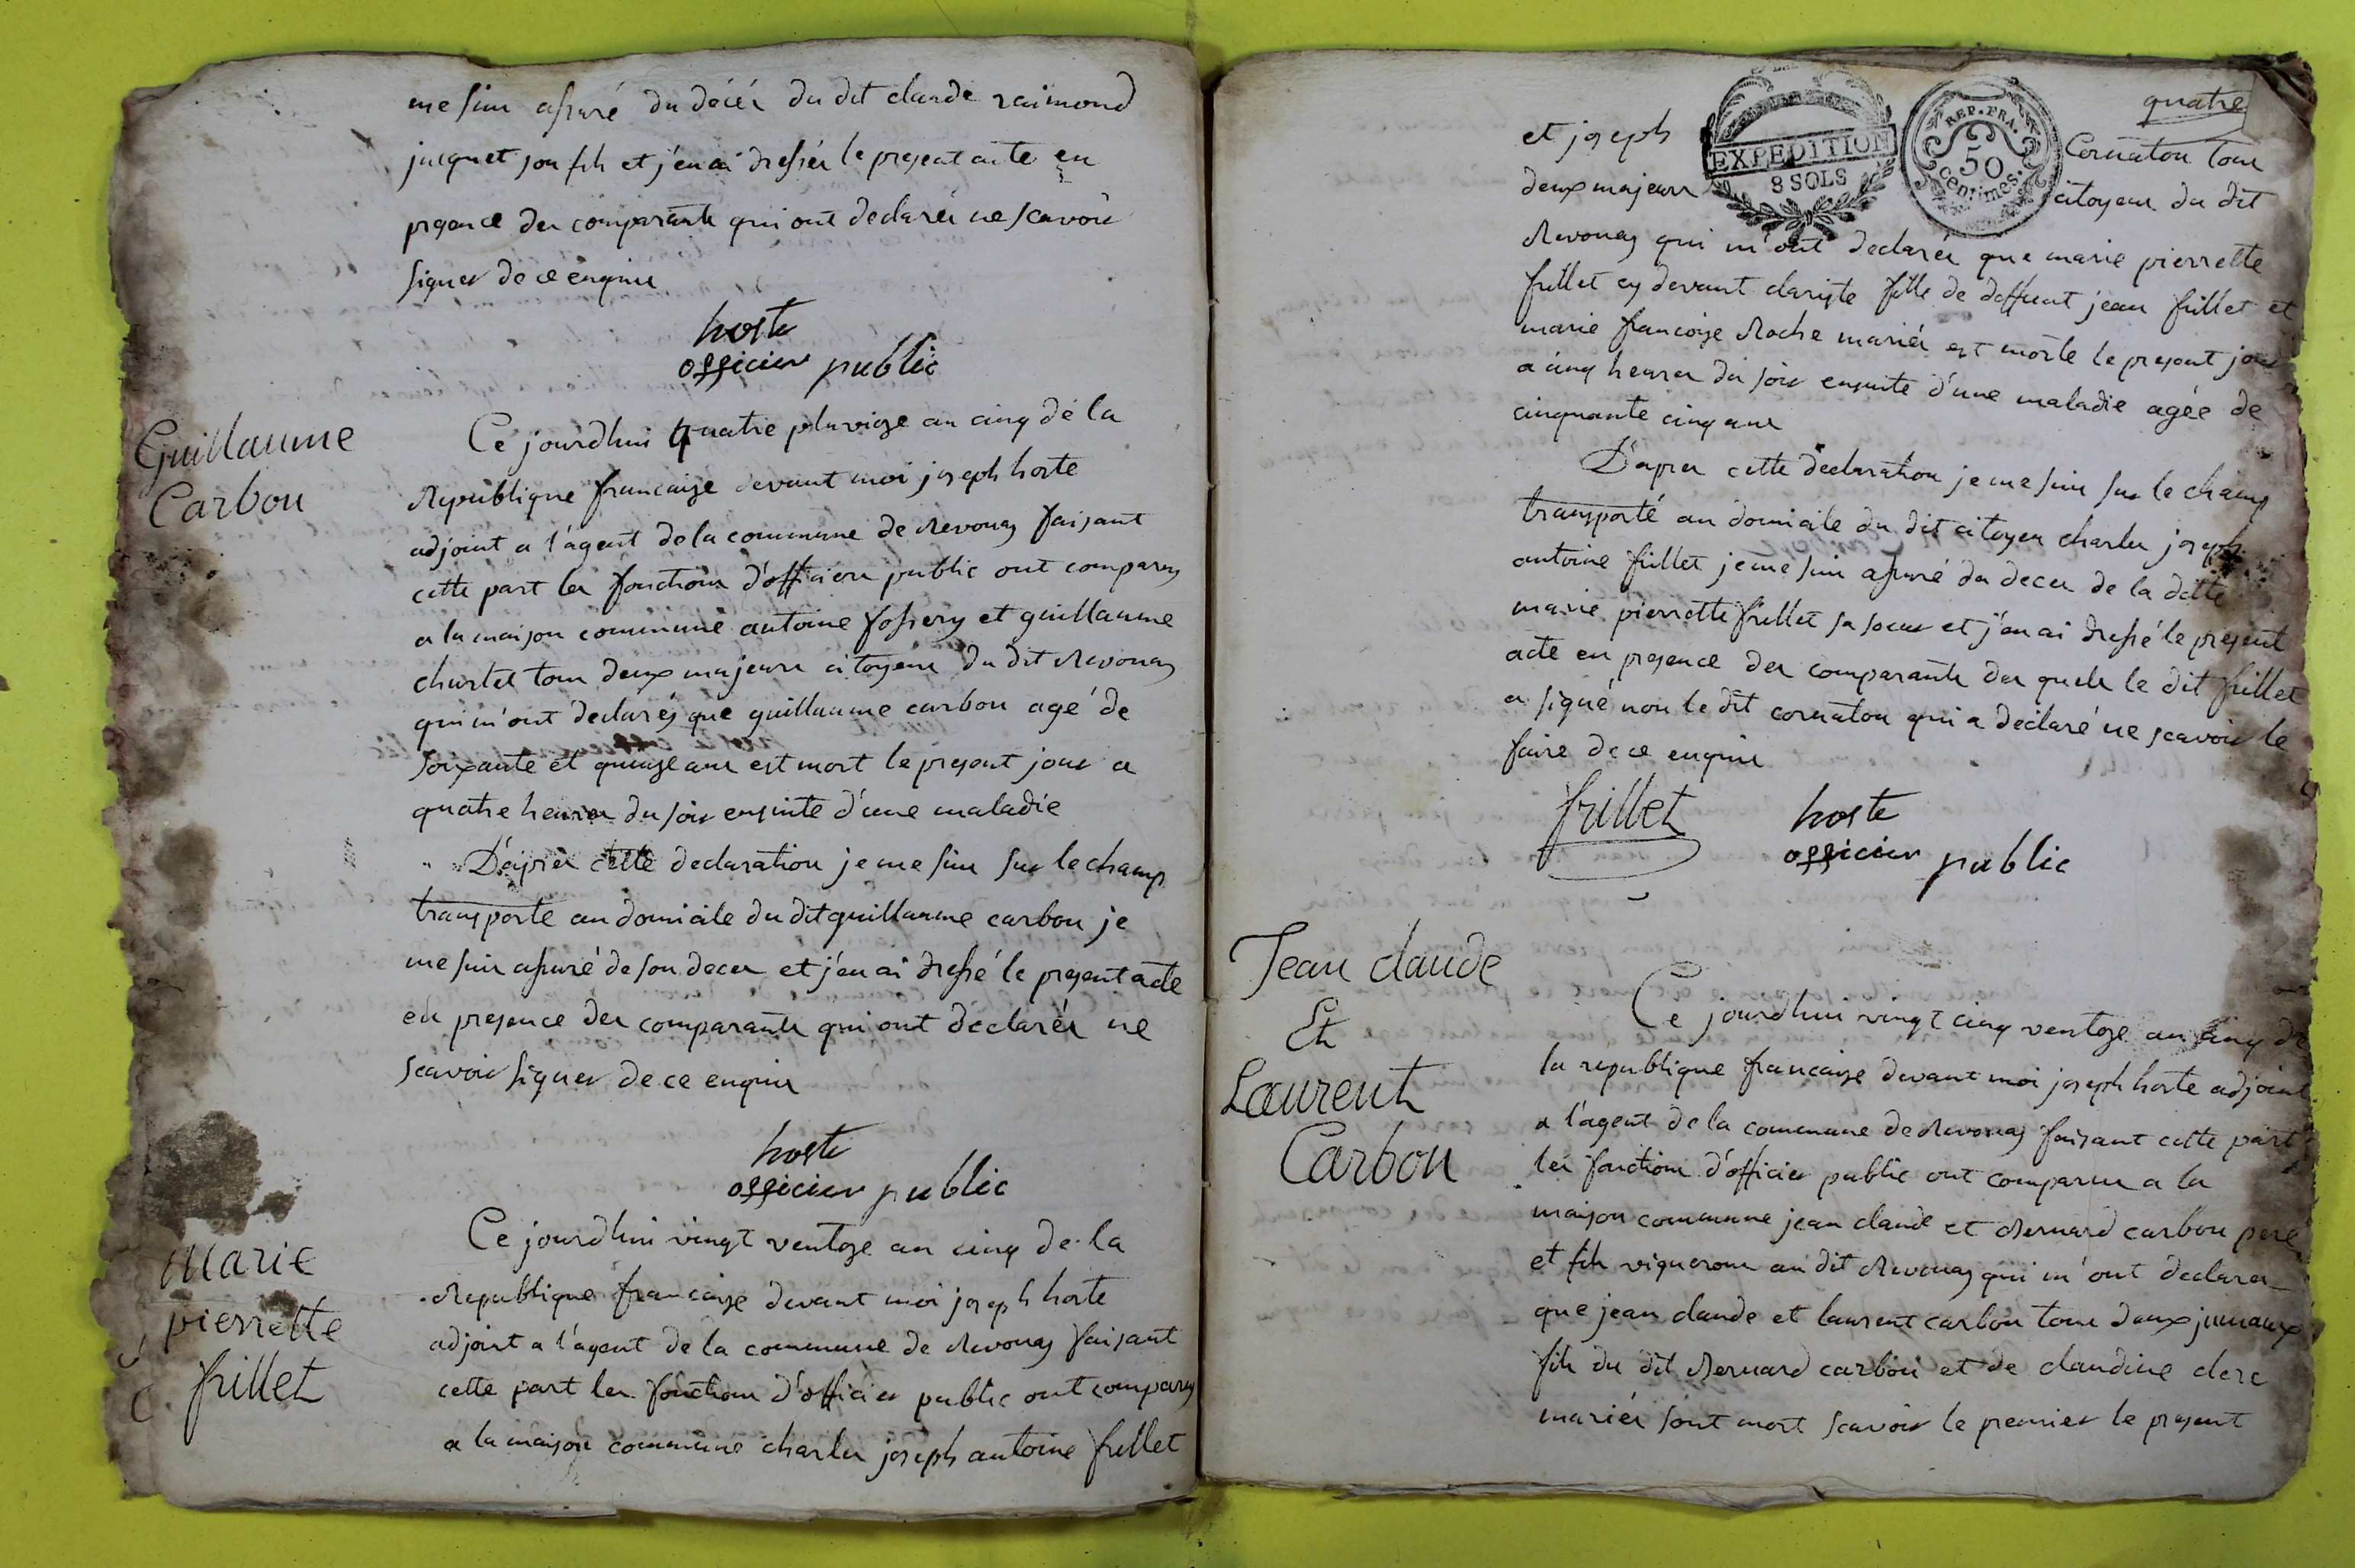 me suis assuré du décés du dit claude raimond
jacquet son fils et j'en ai dressés le present acte en
presence des comparants qui ont declarés ne scavoir
signer de ce enquis
hoste
officier public
Guillaume
Carbon
Ce jourdhui quatre pluviose an cinq de la
Republique francaise devant moi joseph hoste
adjoint a l'agent de la commune de Revonas faisant
cette part les fonctions d'officiers public ont comparus
a la maison commune antoine fossery et guillaume
chastel tous deux majeurs citoyens du dit Revonas
qui m'ont declarés que guillaume carbon agé de
soixante et quinze ans est mort le present jour a
quatre heures du soir ensuite d'une maladie
D'aprés cette declaration je me suis sur le champ
transporte au domicile du dit guillaume carbon je
me suis assuré de son deces et j'en ai dressé le present acte
en presence des comparants qui ont déclarés ne
scavoir signer de ce enquis
hoste
officier public
Marie
pierrette
frillet
Ce jourdhui vingt ventose an cinq de la
Republique francaise devant moi joseph hoste
adjoint a l'agent de la commune de Revonas faisant
cette part les fonctions d'officier public ont comparus
a la maison commune charles joseph antoine frillet
quatre
et joseph Cornaton tous
EXPEDITION
8 SOLS
REP. FRA.
50
centimes.
deux majeurs citoyens du dit
Revonas qui m'ont declarés que marie pierrette
frillet cy devant clariste fille de deffunt jean frillet et
marie francoise Roche mariés est morte le present jour
a cinq heures du soir ensuite d'une maladie agée de
cinquante cinq ans
D'apres cette declaration je me suis sur le champ
transporté au domicile du dit citoyen charles joseph
antoine frillet je me suis assuré du deces de la ditte
marie pierrette frillet sa soeur et j'en ai dressé le present
acte en presence des comparants des quels le dit frillet
a signé non le dit cornaton qui a déclaré ne scavoir le
faire de ce enquis
frillet
hoste
officier public
Jean claude
Et
Laurent
Carbon
Ce jourdhui vingt cinq ventose an cinq de
la republique francaise devant moi joseph hoste adjoint
a l'agent de la commune de Revonas faisant cette part
les fonctions d'officier public ont comparus a la
maison commune jean claude et Bernard carbon pere
et fils vignerons au dit Revonas qui m'ont declarer
que jean claude et laurent carbon tous deux jumaux
fils du dit Bernard carbon et de claudine clerc
mariés sont mort scavoir le premier le present